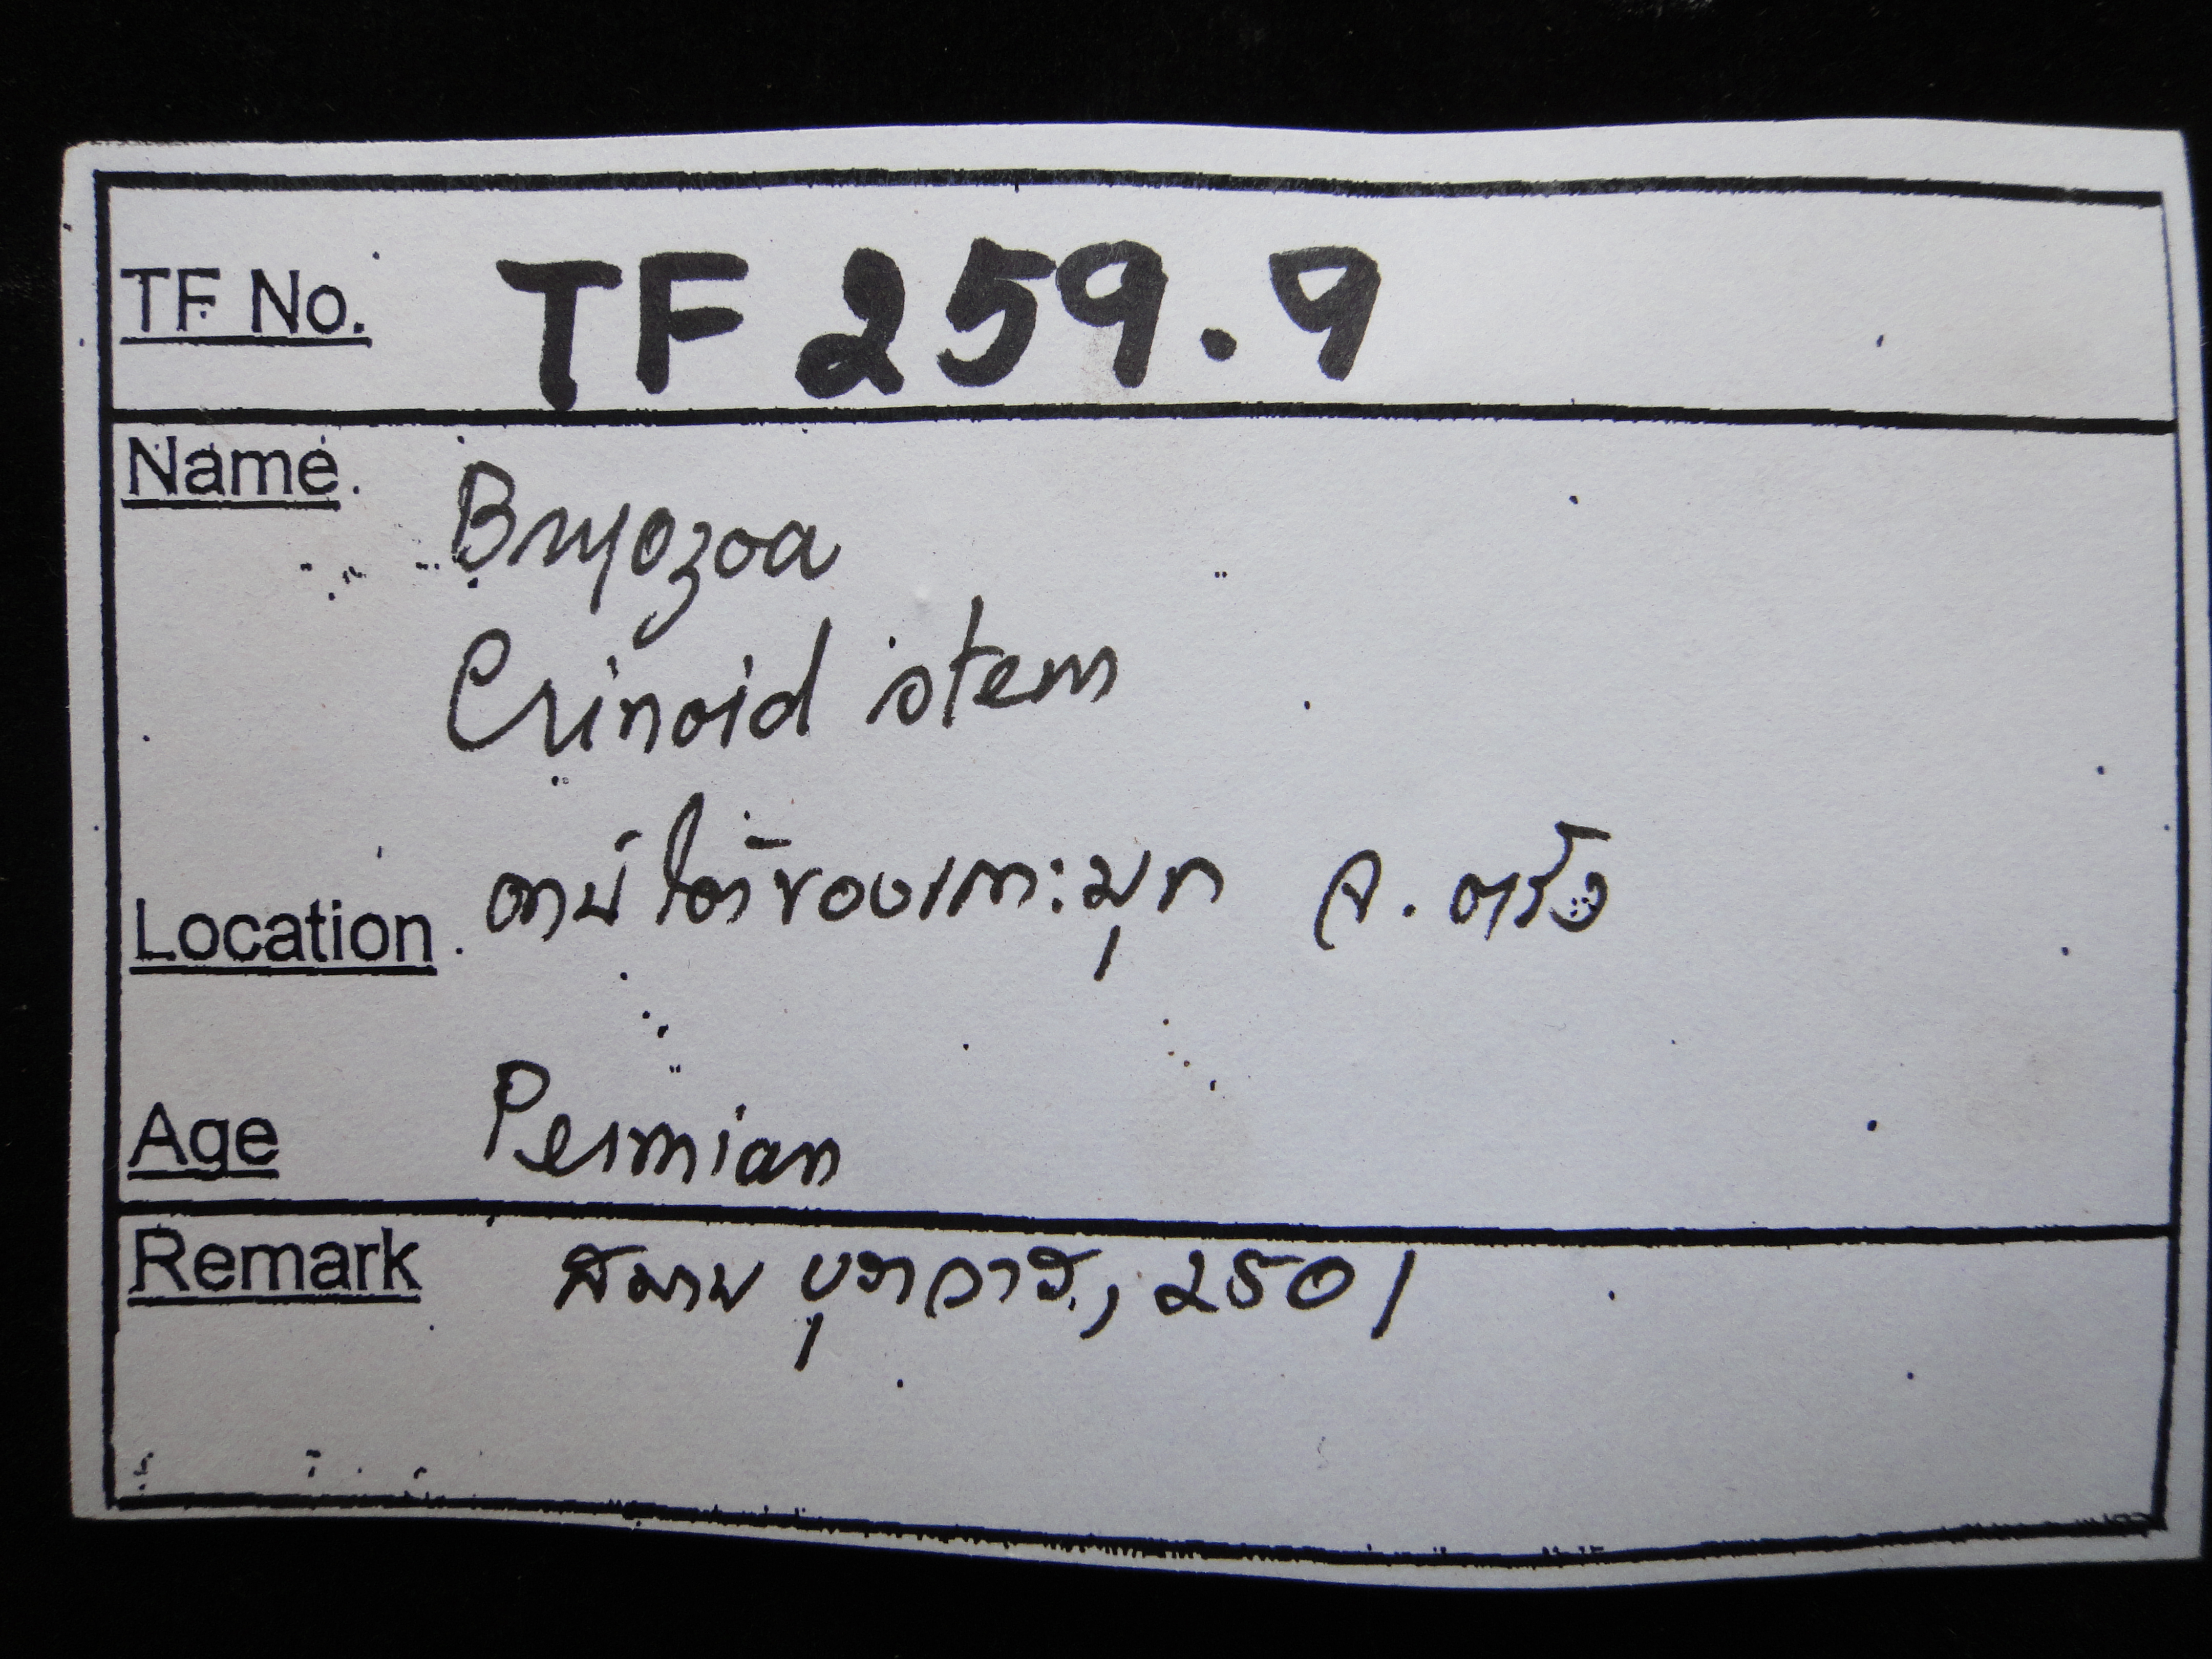 TF No. TF 259.9
Name. Bryozoa
Crinoid stem
Location. ตอนใต้ของเกาะมุก จ. ตรัง
Age Permian
Remark สมาน บุราวาศ, 2501